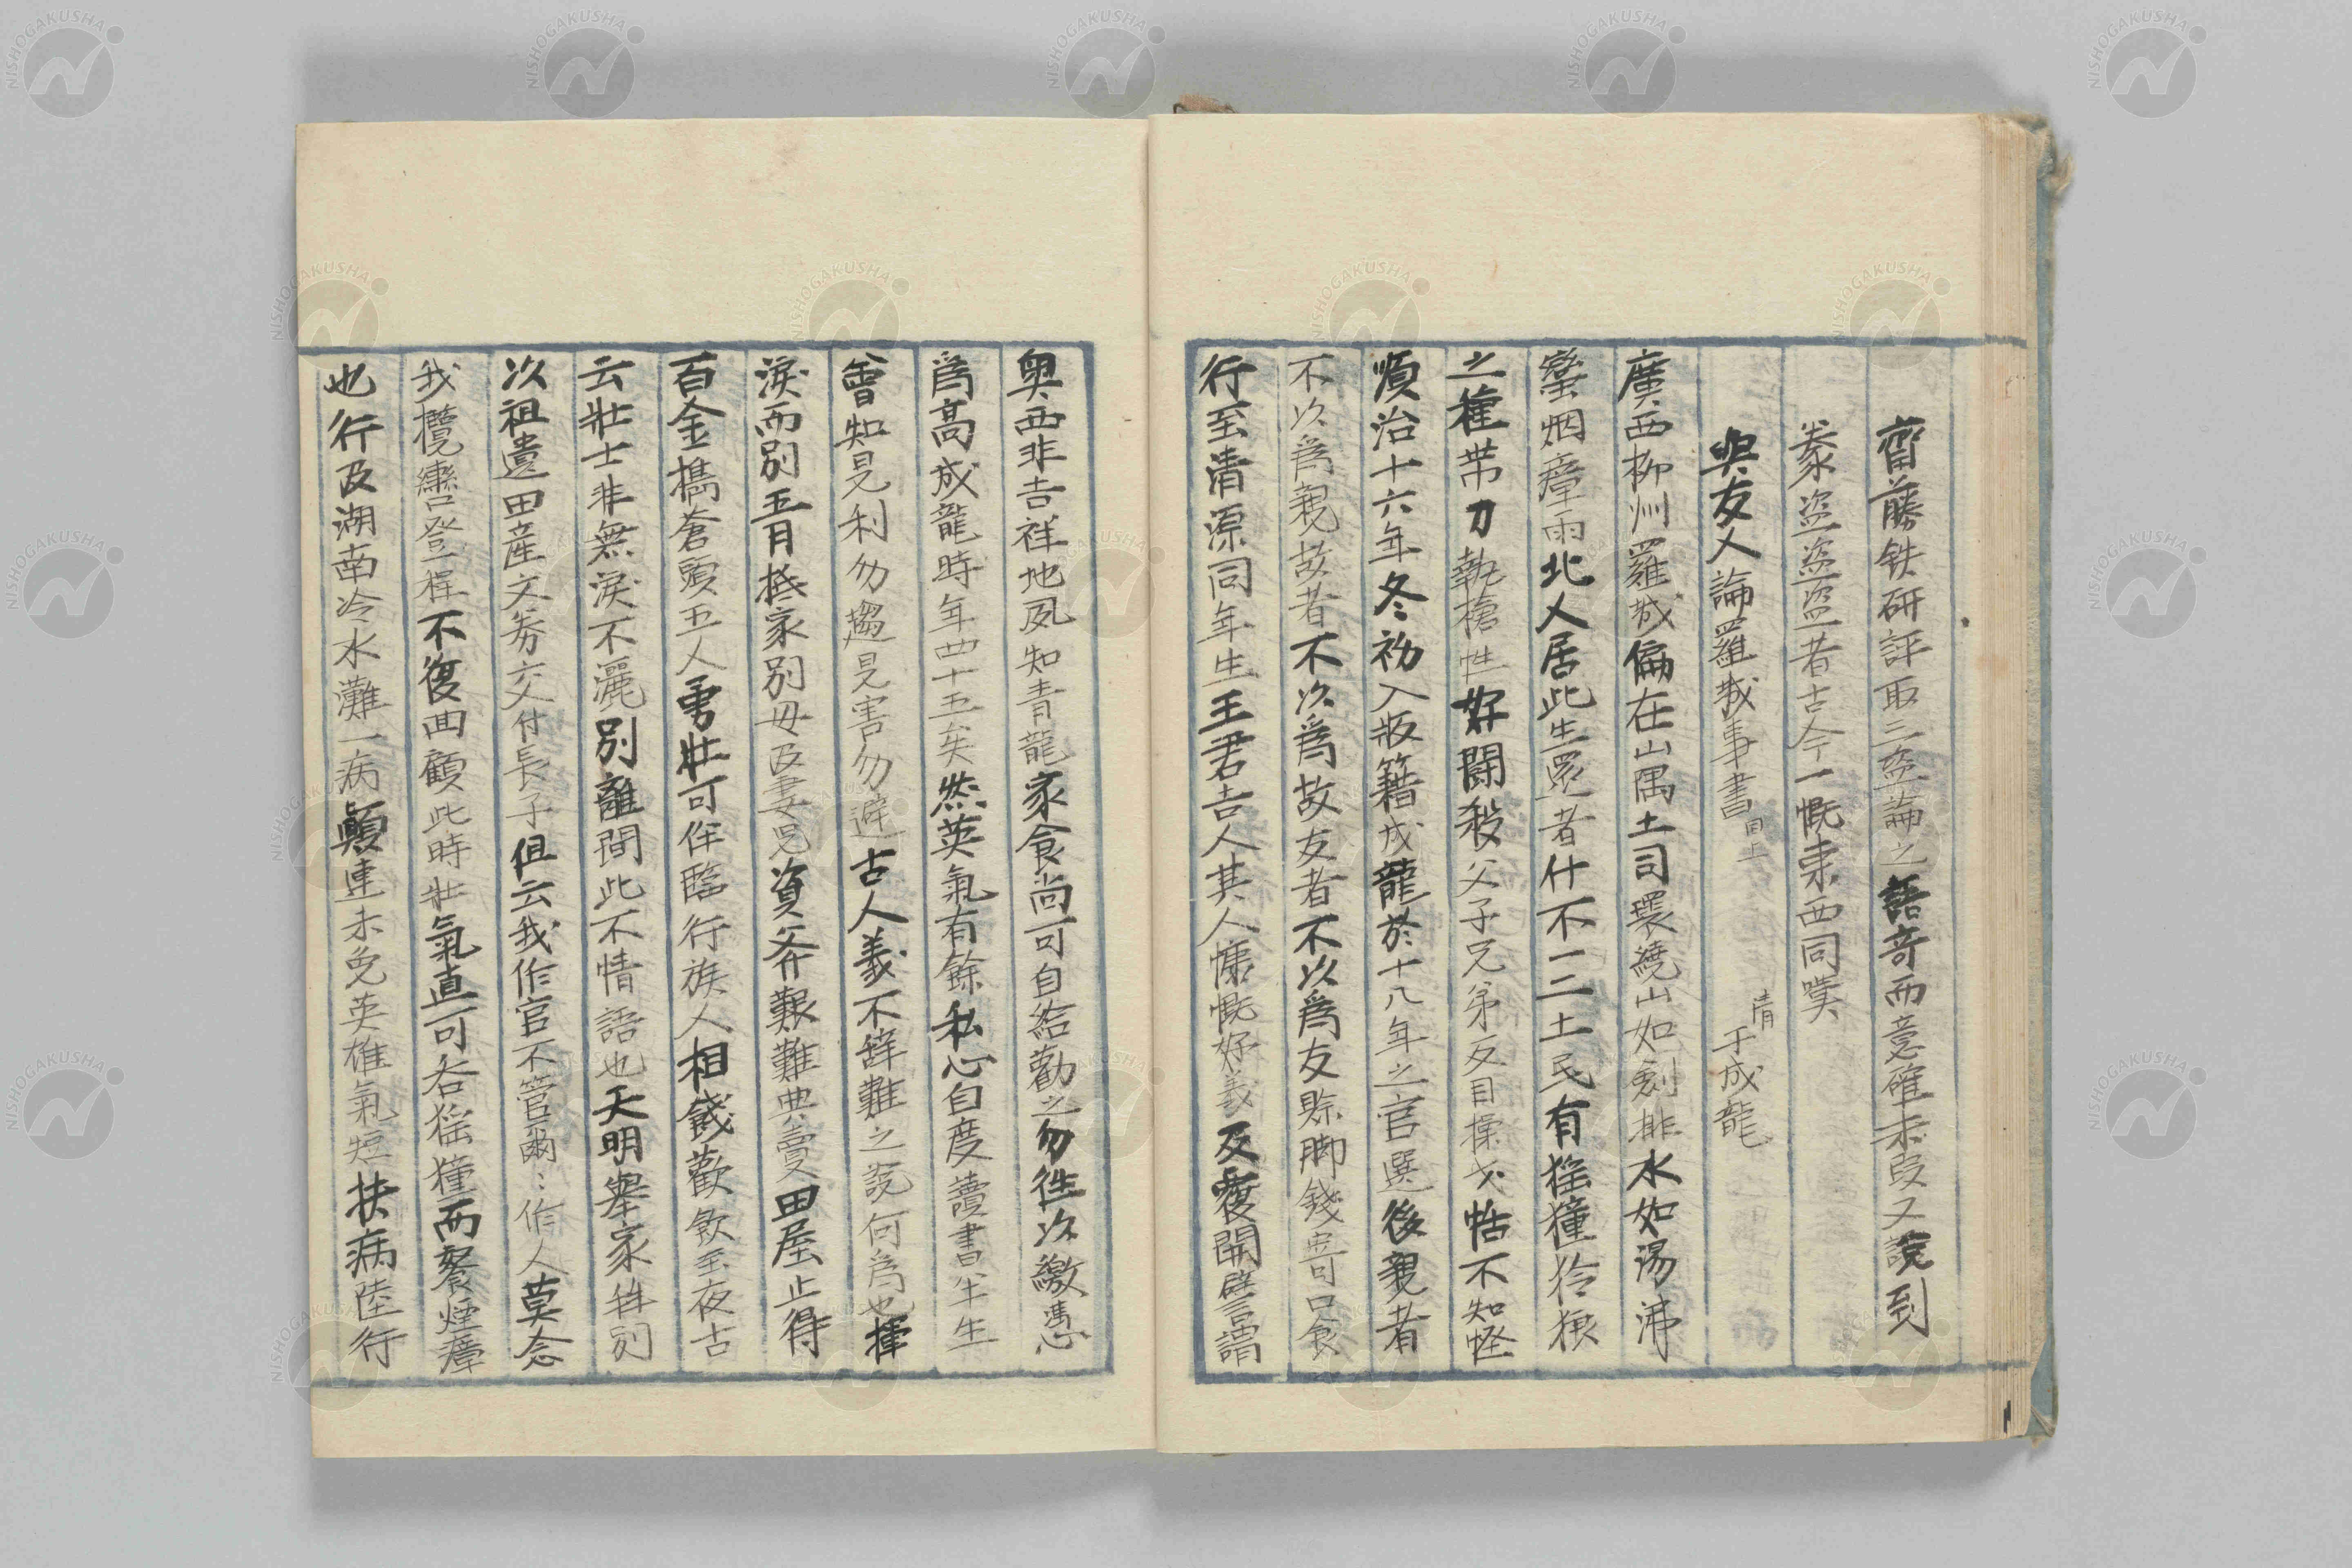 齋藤铁研評取三盗論之語奇而意確未段又說到
豢盗盗盗者古今一慨東西同嘆
與友人論羅城事書 同上 清 于成龍
廣西柳州羅城偏在山隅土司環繞山如劍排水如湯沸
蠻烟瘴雨北人居此生還者什不一二土民有猺獞狑狼
之種帶刀執槍性好鬪殺父子兄弟反目操戈恬不知怪
順治十六年冬初入版籍成龍於十八年之官選後親者
不以為親故者不以為故友者不以為友賒脚錢寄口食
行至清源同年生王君吉人其人慷慨好義反覆開譬謂
奧西非吉祥地夙知青龍家食尚可自給勸之勿徃以繳憑
為高成龍時年四十五矣然英氣有餘私心自度讀書半生
曾知見利勿趨見害勿避古人義不辤難之説何為也揮
淚而別五月抵家別母及妻兒資斧艱難典賣田屋止得
百金擕蒼頭五人勇壯可伴臨行族人相餞歡飲至夜古
云壯士非無淚不灑別離間此不情語也天明舉家牲別
以祖遺田産文券交付長子但云我作官不管爾〻作人莫念
我欖轡登程不復囬顧此時壯氣直可吞猺獞而餐煙瘴
也行及湖南冷水灘一病顚連未免英雄氣短扶病陸行